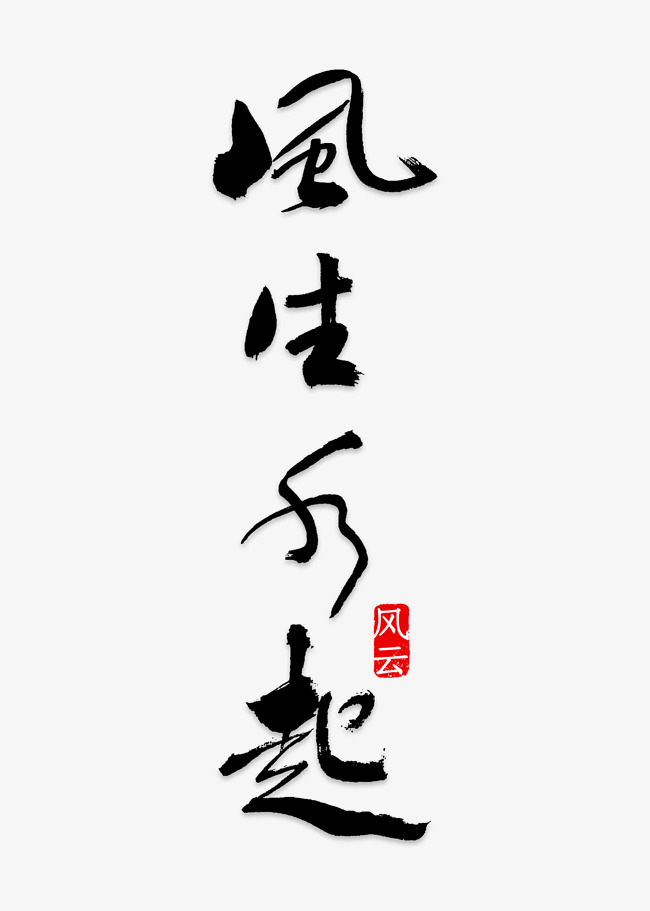 風生水起
风云